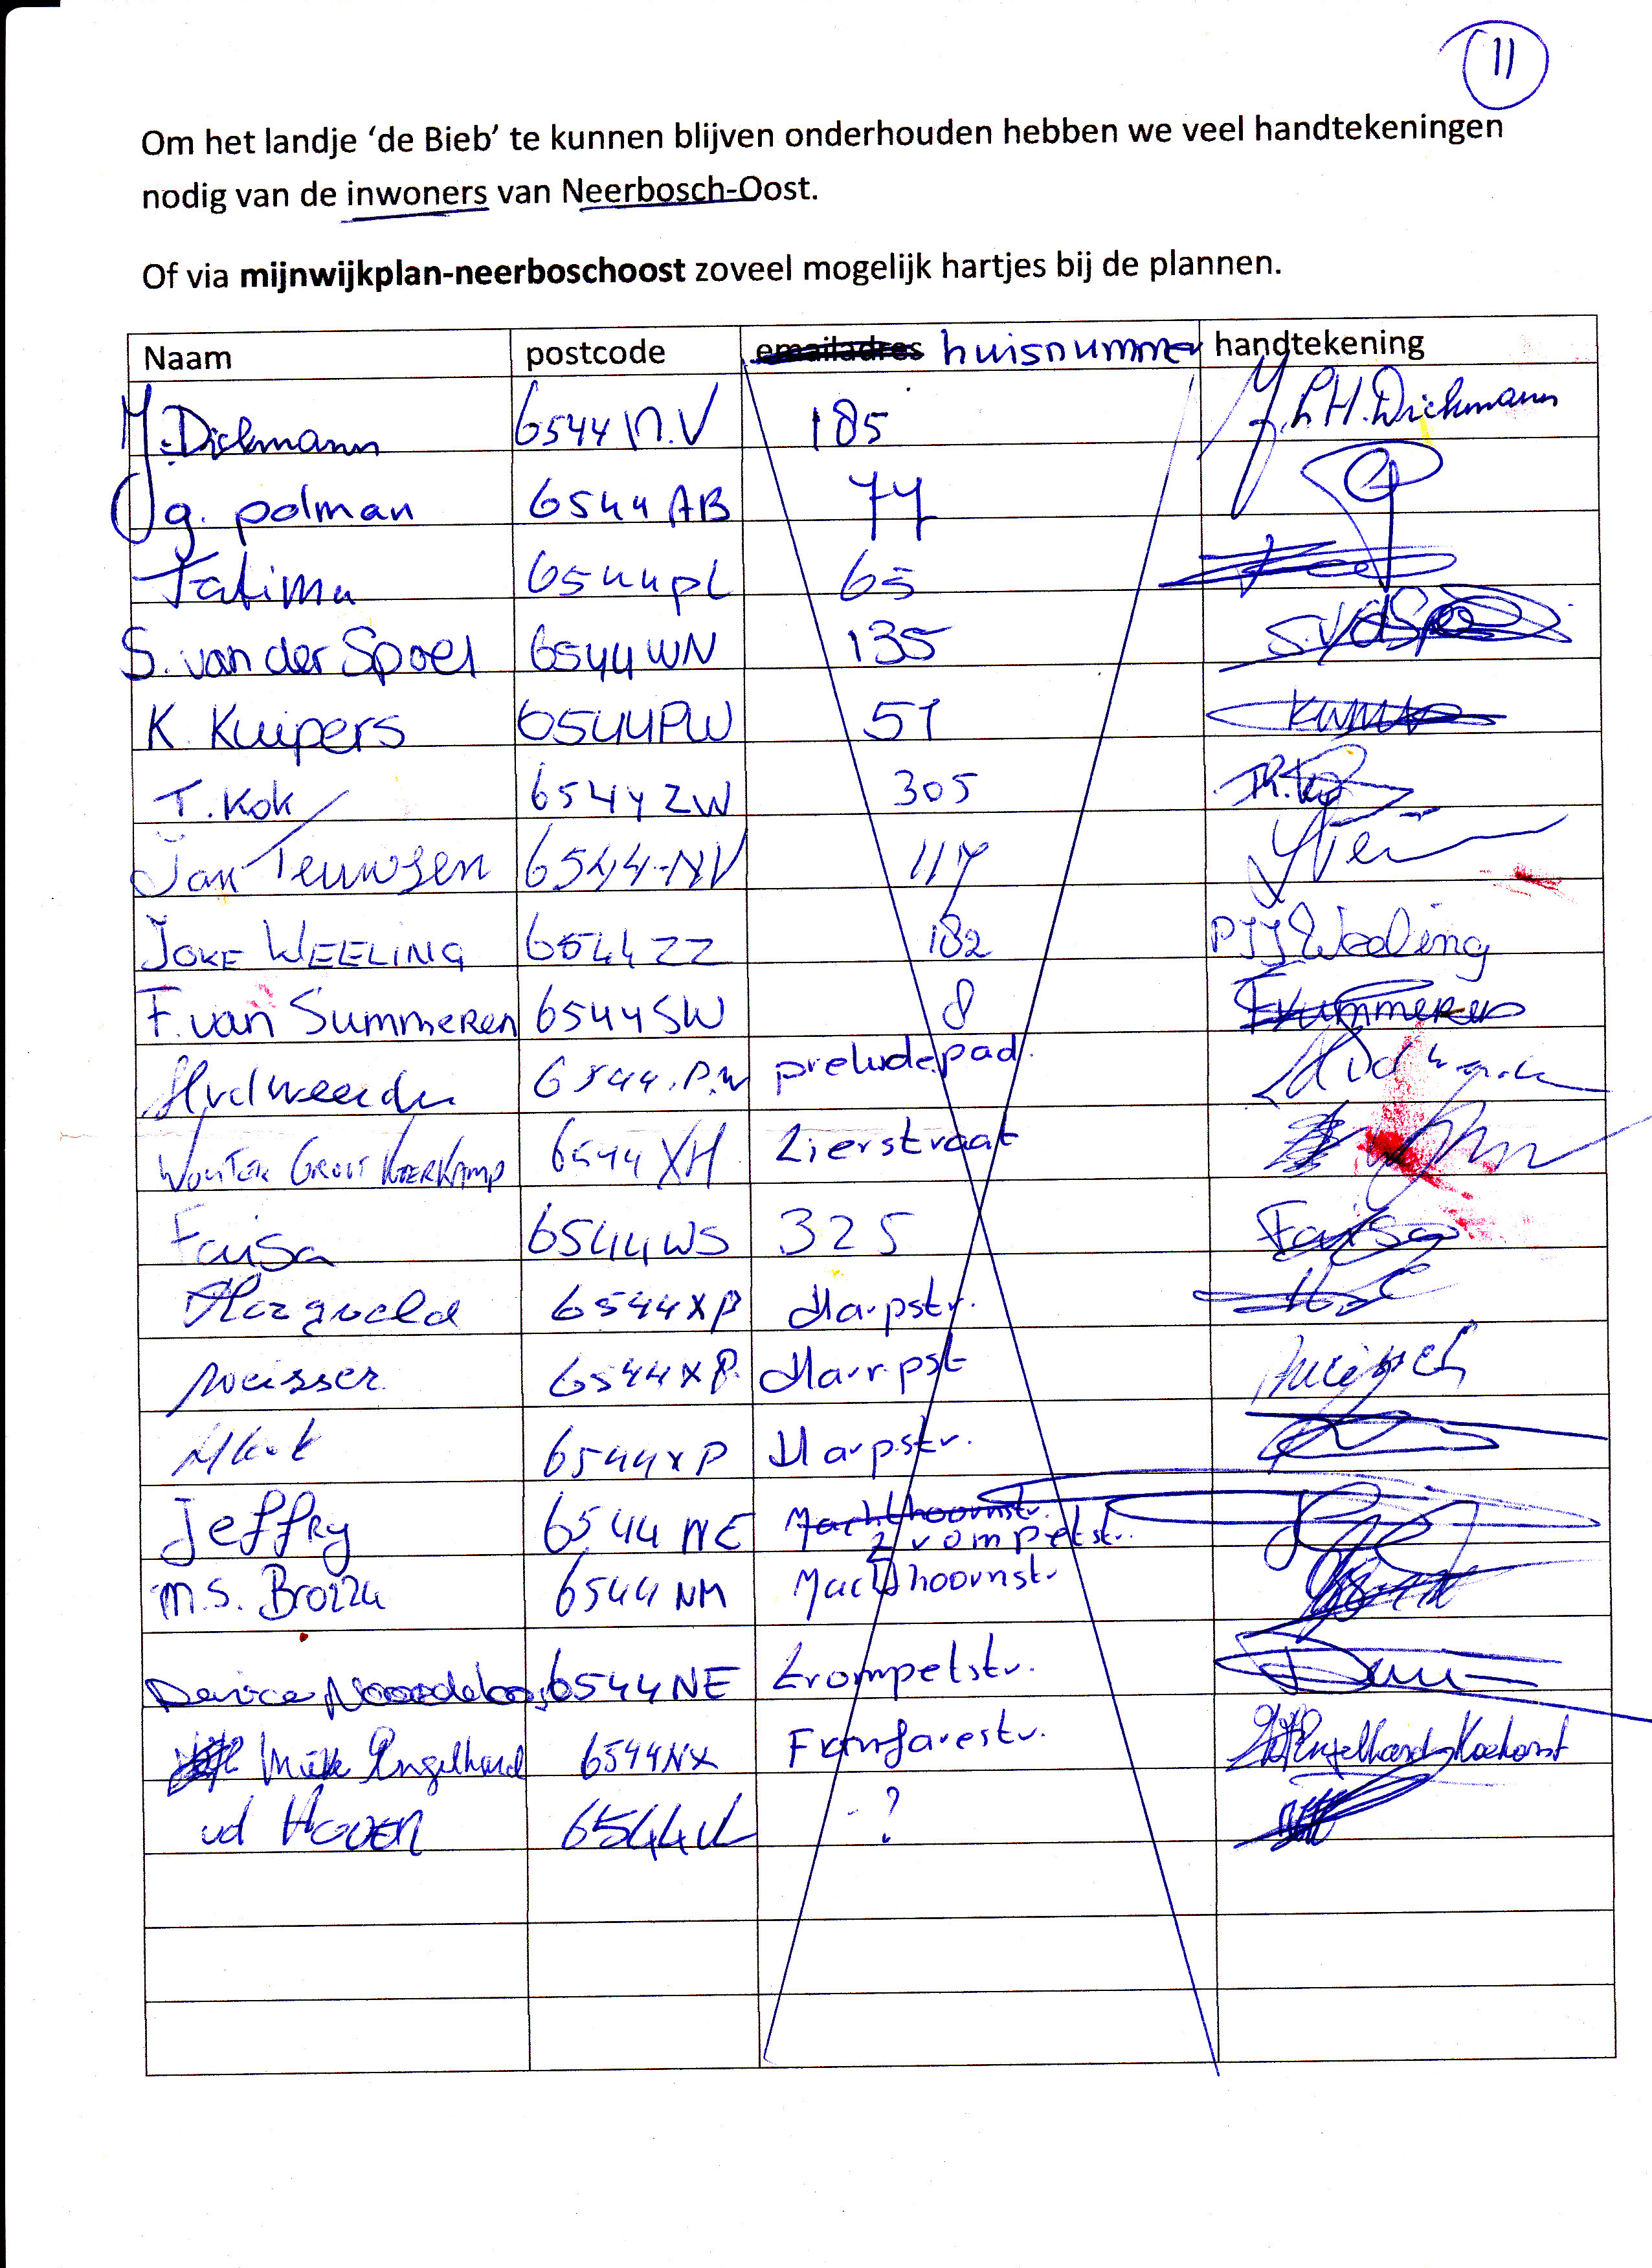 11
Om het landje ‘de Bieb’ te kunnen blijven onderhouden hebben we veel handtekeningen
nodig van de inwoners van Neerbosch-Oost.
Of via mijnwijkplan-neerboschoost zoveel mogelijk hartjes bij de plannen.
Naam postcode emailadres huisnummer handtekening
J. Dickmann 6544 N.V 185 J.L.H. Dickmann
g. polman 6544 AB 77
Fatima 6544 pL 65
S. van der Spoel 6544 WN 135 S.vdSpoel
K. Kuipers 6544PW 51
T. Kok 6544 ZW 305
Jan Teunissen 6544-NV 117
JOKE WEELING 6544 ZZ 182 PJJ Weeling
F. van Summeren 6544 SW 8 FvSummeren
6544 P.W preludepad.
WOUTER GROOT KOERKAMP 6544 XH Lierstraat
Faisa 6544WS 325 Faisa
Hazqueld 6544XP Harpstr.
Meisser 6544XP. Harpst
6544XP Harpstr.
Jeffry 6544 NE Machthoornstr. Trompetstr.
M.S. Brozza 6544 NM Jachthoornstr
6544NE Trompetstr.
Miek Engelhard 6544NX Fanfarestr. Engelhard-Koehorst
vd Hoven 6544 ?